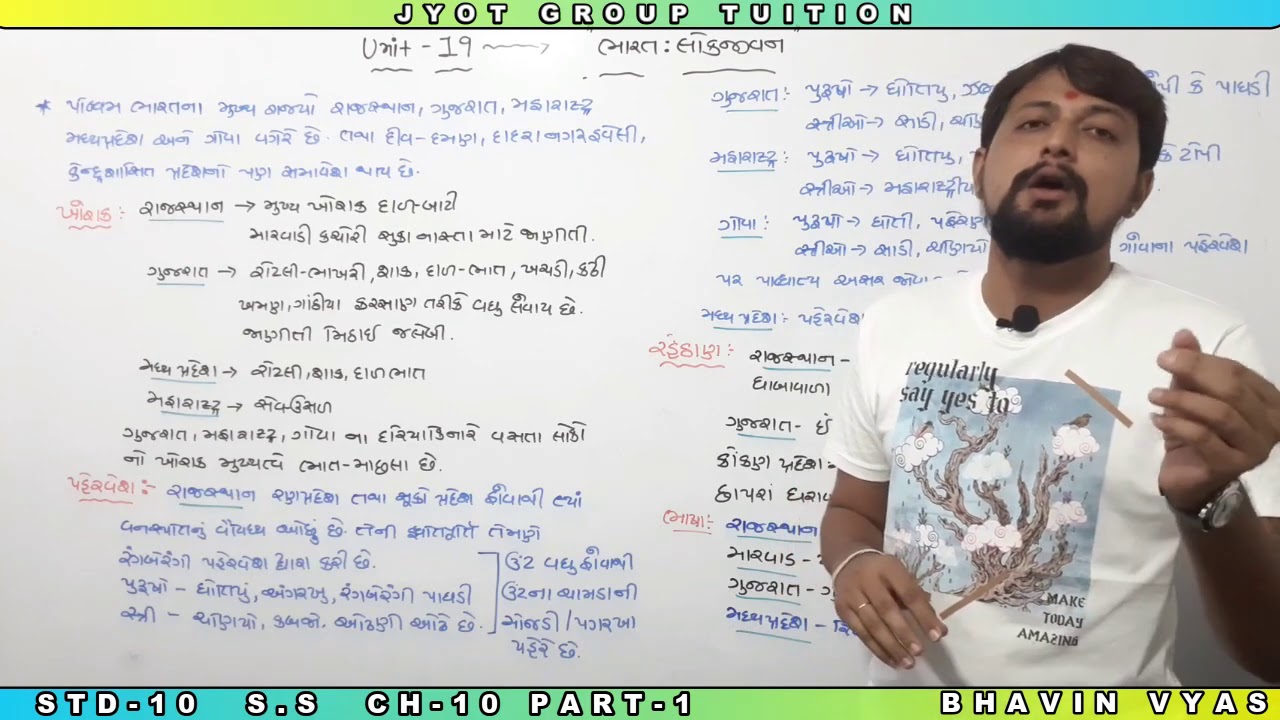 JYOT GROUP TUITION
Unit - 19 → "ભારત : લોકજીવન"
* પશ્ચિમ ભારતના મુખ્ય રાજ્યો રાજસ્થાન, ગુજરાત, મહારાષ્ટ્ર
મધ્યપ્રદેશ અને ગોવા વગેરે છે. તથા દીવ-દમણ, દાદરાનગરહવેલી,
કેન્દ્રશાસિત પ્રદેશનો પણ સમાવેશ થાય છે.
ખોરાક: રાજસ્થાન → મુખ્ય ખોરાક દાળ-બાટી
મારવાડી કચોરી સુકા નાસ્તા માટે જાણીતી.
ગુજરાત → રોટલી-ભાખરી, શાક, દાળ-ભાત, ખીચડી, કઢી
ખમણ, ગાંઠીયા ફરસાણ તરીકે વધુ લેવાય છે.
જાણીતી મિઠાઈ જલેબી.
મધ્યપ્રદેશ → રોટલી, શાક, દાળભાત
મહારાષ્ટ્ર → સેવઉસળ
ગુજરાત, મહારાષ્ટ્ર, ગોવા ના દરિયાકિનારે વસતા લોકો
નો ખોરાક મુખ્યત્વે ભાત-માછલા છે.
પહેરવેશ:- રાજસ્થાન રણપ્રદેશ તથા સૂકો પ્રદેશ હોવાથી ત્યાં
વનસ્પતિનું વૈવિધ્ય ઓછું છે. તેની ક્ષતિપૂર્તિ તેમણે
રંગબેરંગી પહેરવેશ દ્વારા કરી છે.
પુરુષો - ધોતિયું, અંગરખુ, રંગબેરંગી પાઘડી
સ્ત્રી - ચણિયો, કબજો, ઓઢણી ઓઢે છે.
ઉંટ વધુ હોવાથી
ઉંટના ચામડાની
મોજડી / પગરખા
પહેરે છે.
ગુજરાત: પુરુષો → ધોતિયુ, કે પાઘડી
સ્ત્રીઓ → સાડી,
મહારાષ્ટ્ર: પુરુષો → ધોતિયુ, કે ટોપી
સ્ત્રીઓ → મહારાષ્ટ્રીય
ગોવા: પુરુષો → ધોતી,
સ્ત્રીઓ → સાડી, ચણિયો ગોવાના પહેરવેશ
પર પાશ્ચાત્ય અસર
મધ્યપ્રદેશ:- પહેરવેશ
રહેઠાણ: રાજસ્થાન -
ધાબાવાળા
ગુજરાત -
કોંકણ પ્રદેશ -
છાપરાં
ભાષા: રાજસ્થાન
મારવાડ -
ગુજરાત -
મધ્યપ્રદેશ -
regularly
say yes to
MAKE
TODAY
AMAZING
STD-10 S.S CH-10 PART-1
BHAVIN VYAS